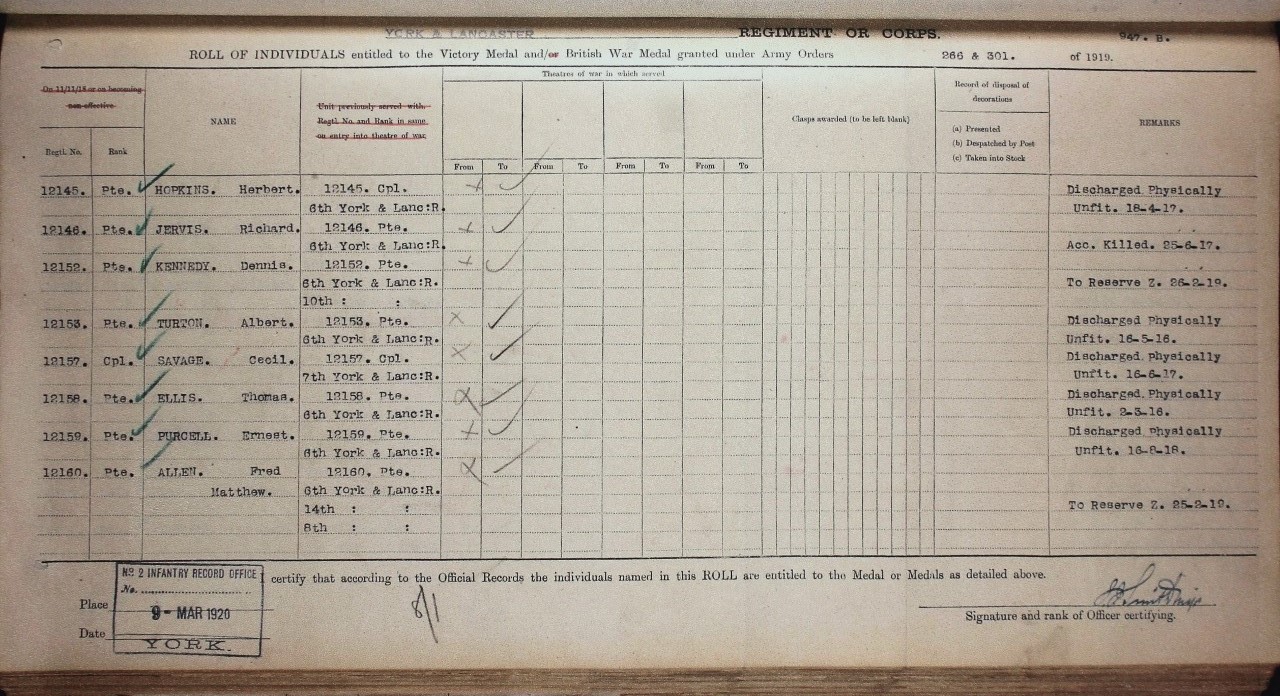 YORK & LANCASTER REGIMENT OR CORPS. 947. B.
ROLL OF INDIVIDUALS entitled to the Victory Medal and/or British War Medal granted under Army Orders 266 & 301. of 1919.
On 11/11/18 or on becoming non-effective
Regtl. No.
Rank
NAME
Unit previously served with. Regtl. No. and Rank in same on entry into theatre of war
Theatres of war in which served
From To From To From To From To
Clasps awarded (to be left blank)
Record of disposal of decorations
(a) Presented
(b) Despatched by Post
(c) Taken into Stock
REMARKS
12145. Pte. HOPKINS. Herbert. 12145. Cpl. Discharged Physically
6th York & Lanc:R. Unfit. 18-4-17.
12146. Pte. JERVIS. Richard. 12146. Pte.
6th York & Lanc:R. Acc. Killed. 25-6-17.
12152. Pte. KENNEDY. Dennis. 12152. Pte.
6th York & Lanc:R. To Reserve Z. 26-2-19.
10th : :
12153. Pte. TURTON. Albert. 12153. Pte. Discharged Physically
6th York & Lanc:R. Unfit. 16-5-16.
12157. Cpl. SAVAGE. Cecil. 12157. Cpl. Discharged Physically
7th York & Lanc:R. Unfit. 16-6-17.
12158. Pte. ELLIS. Thomas. 12158. Pte. Discharged Physically
6th York & Lanc:R. Unfit. 2-3-16.
12159. Pte. PURCELL. Ernest. 12159. Pte. Discharged Physically
6th York & Lanc:R. Unfit. 16-8-18.
12160. Pte. ALLEN. Fred 12160. Pte.
Matthew. 6th York & Lanc:R.
14th : : To Reserve Z. 25-2-19.
8th : :
No. 2 INFANTRY RECORD OFFICE
No.
9- MAR 1920
YORK.
certify that according to the Official Records the individuals named in this ROLL are entitled to the Medal or Medals as detailed above.
Place
Date
Signature and rank of Officer certifying.